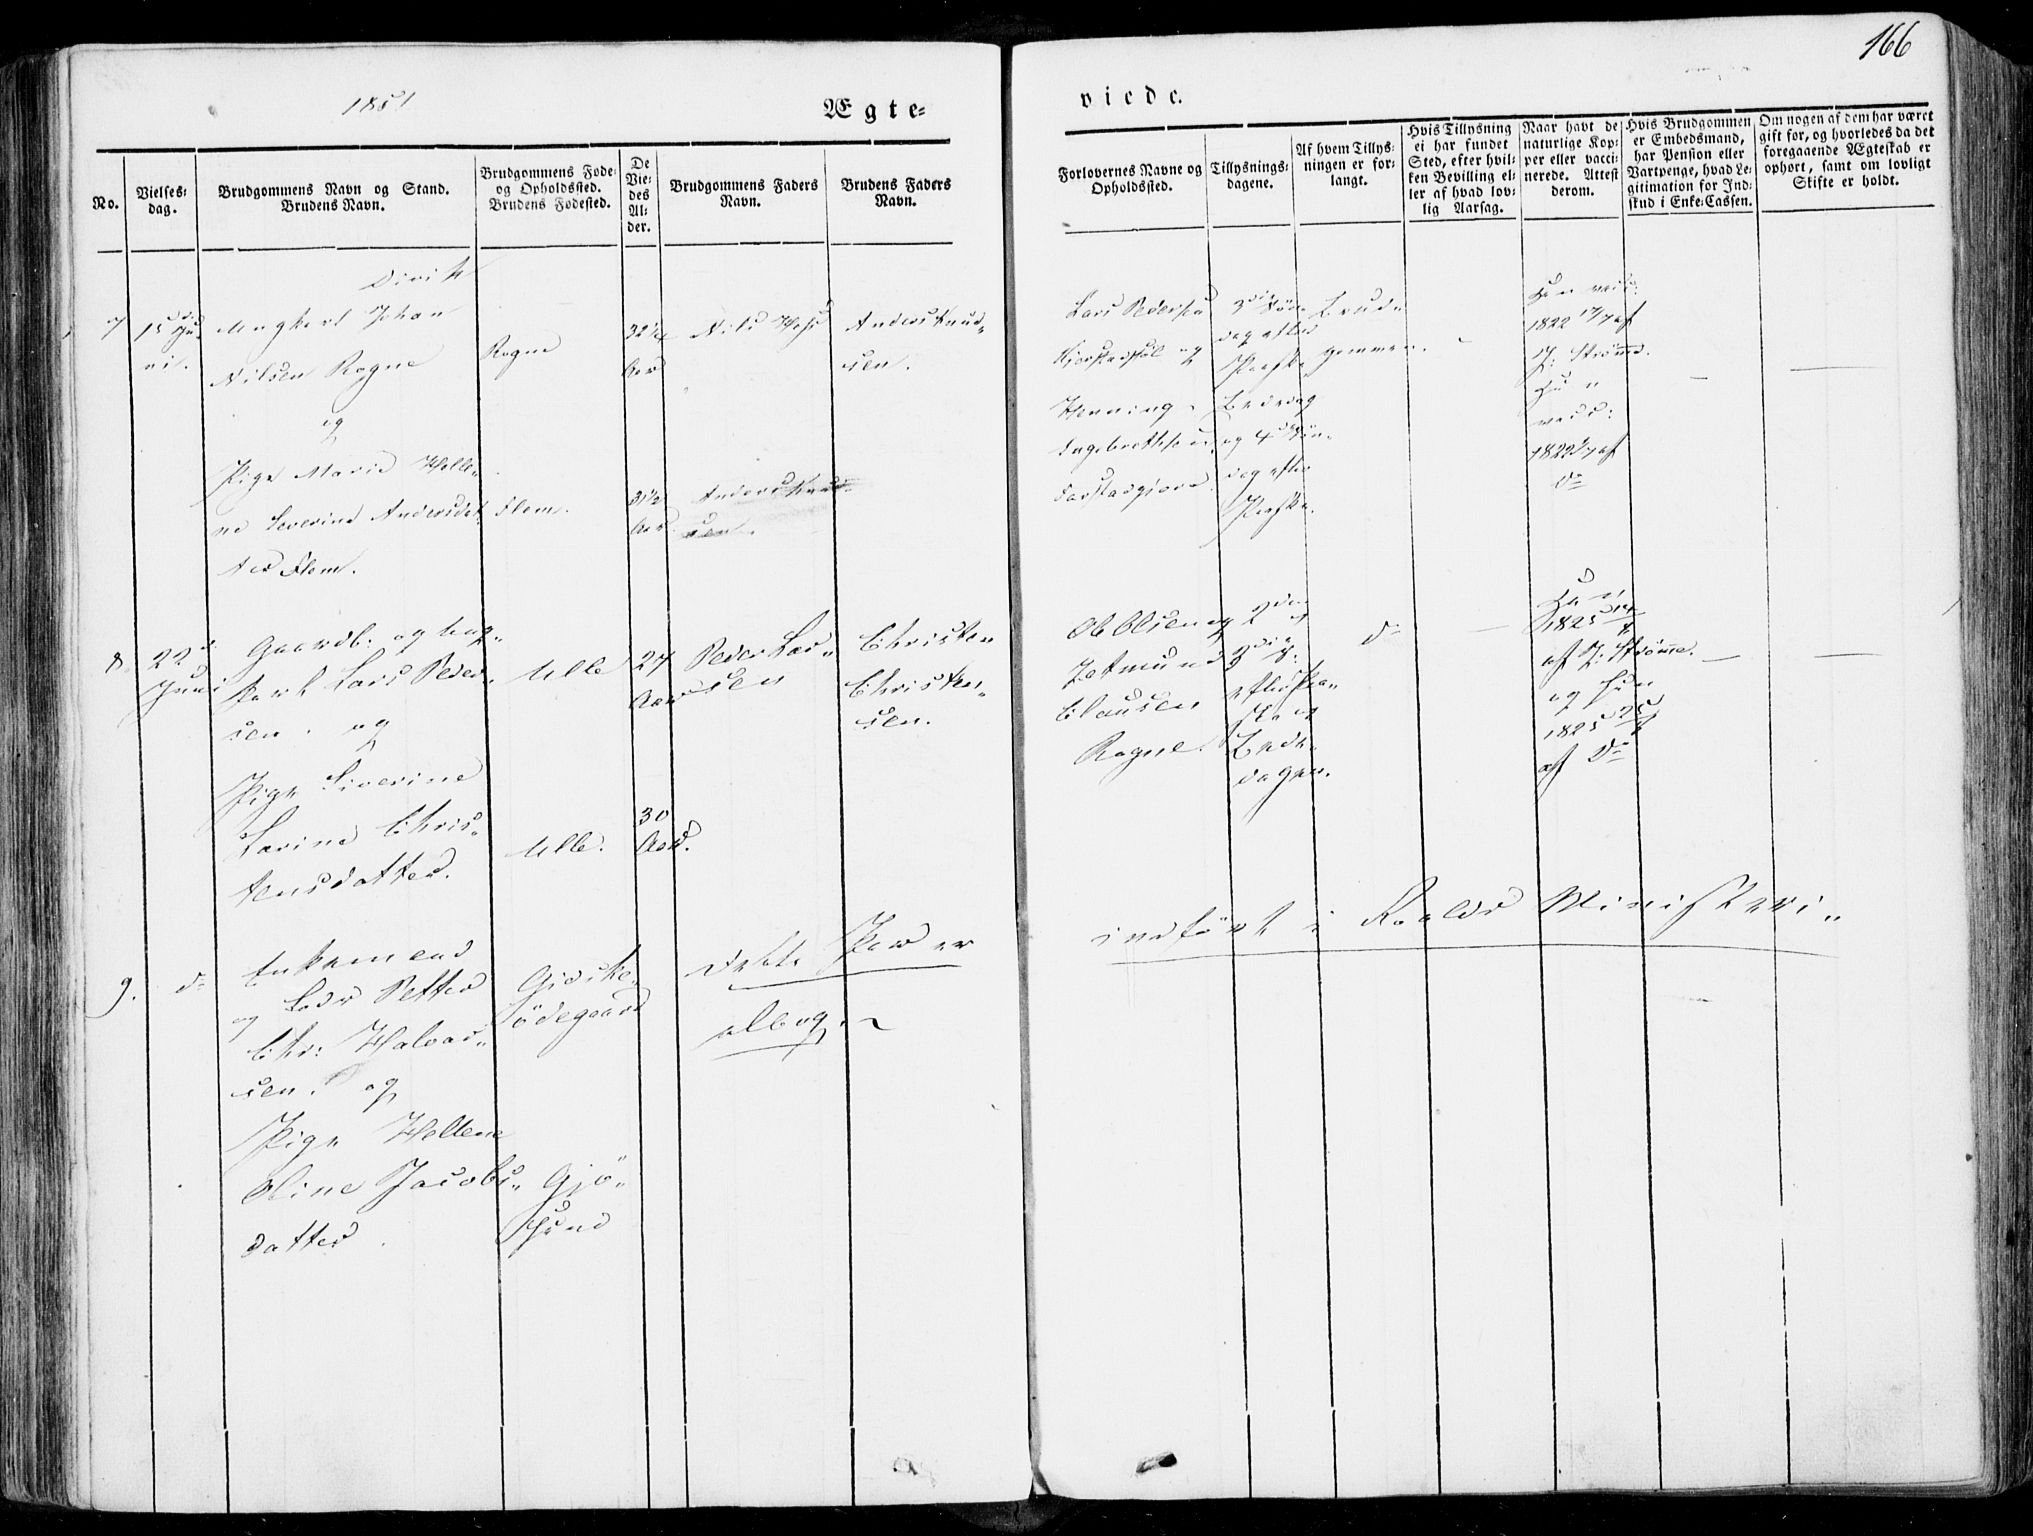 166
1851
Ægte=
viede.
No.
Vielses=
dag.
Brudgommens Navn og Stand.
Brudens Navn.
Brudgommens Føde=
og Opholdssted.
Brudens Fødested.
De
Vie=
des
Al=
der.
Brudgommens Faders
Navn.
Brudens Faders
Navn.
Forlovernes Navne og
Opholdssted.
Tillysnings=
dagene.
Af hvem Tillys=
ningen er for=
langt.
Hvis Tillysning
ei har fundet
Sted, efter hvil=
ken Bevilling el=
ler af hvad lov=
lig Aarsag.
Naar havt de
naturlige Kop=
per eller vacci=
nerede. Attest
derom.
Hvis Brudgommen
er Embedsmand,
har Pension eller
Vartpenge, hvad Le=
gitimation for Ind=
skud i Enke=Cassen.
Om nogen af dem har været
gift før, og hvorledes da det
foregaaende Ægteskab er
ophørt, samt om lovligt
Skifte er holdt.
7
15de Ju„
ni.
Ungkarl Johan
Nilsen Rogne
og
Pige Marie Helle„
ne Severine Andersdat„
ter Flem.
Rogne
Flem.
32 1/4
Aar
31 1/2
Aar.
Nils
Anders Knud„
sen.
Anders Knud„
sen.
Lars Pedersen
og
Henning
Ingebrethsen
3die Søn„
dag efter
Paaske,
Bededag
og 4de Søn„
dag efter
Paaske.
Brud„
gommen.
1822 17/7 af
J. Strømme.
Hun
vacc:
1822 af
do
8.
22de
Juni
Gaardb: og Ung„
karl Lars Peder„
sen. og
Pige Siverine
Larine Chris„
tensdatter.
Ulle
Ulle.
27
Aar
30
Aar.
Peder Lar„
sen
Christen
Christen„
sen.
Ole Olsen og
Clausen
Rogne.
2den og
3die S:
efter Paa„
ske og
Bede„
dagen.
do
1825 14/7
af J: Strømme.
og hun
1825 25/7
af do
9.
do
Enkemand
og Lods Petter
Chr: Halvor„
sen. og
Pige Hellene
Oline Jacobs„
datter.
Giske
Ødegaard
Gjø„
sund
dette Par er
alleog.
indført i Roalds Ministeri„